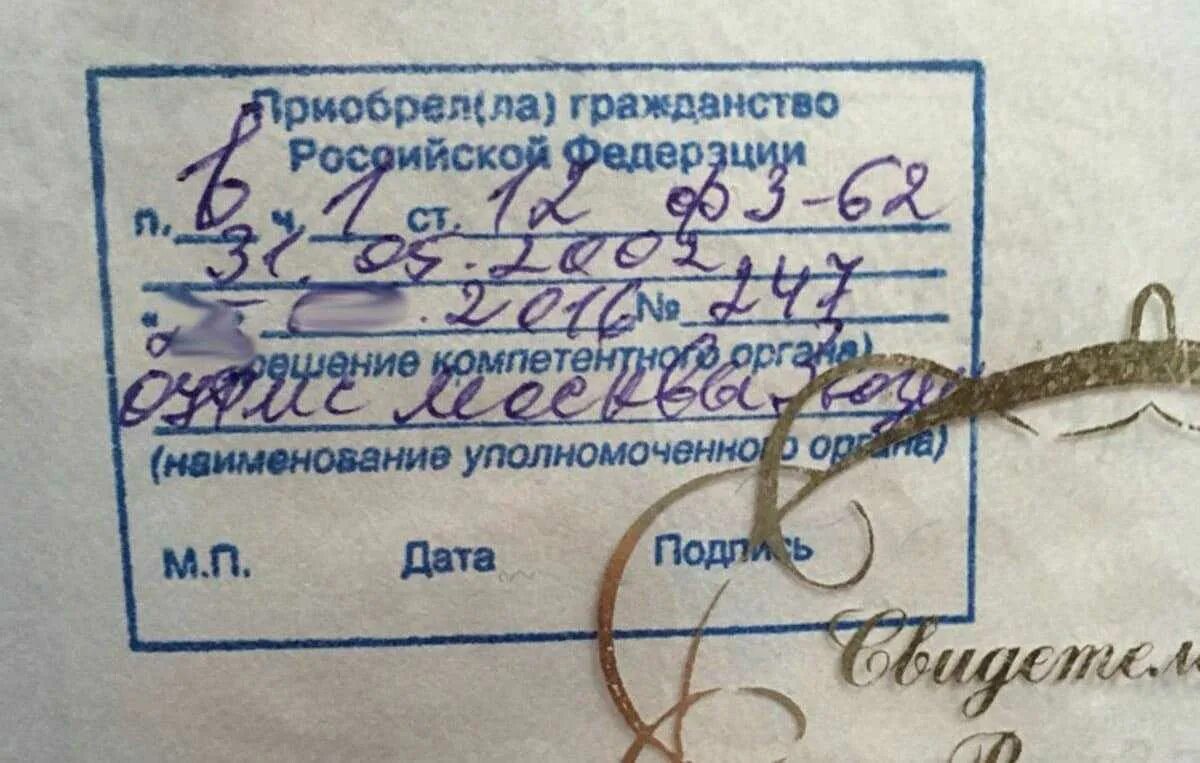 Приобрел(ла) гражданство
Российской Федерации
п. в ч. 1 ст. 12 ФЗ-62
31.05.2002
" .2016 № 247
(решение компетентного органа)
ОУФМС Москвы
(наименование уполномоченного органа)
М.П. Дата Подпись
Свидетел